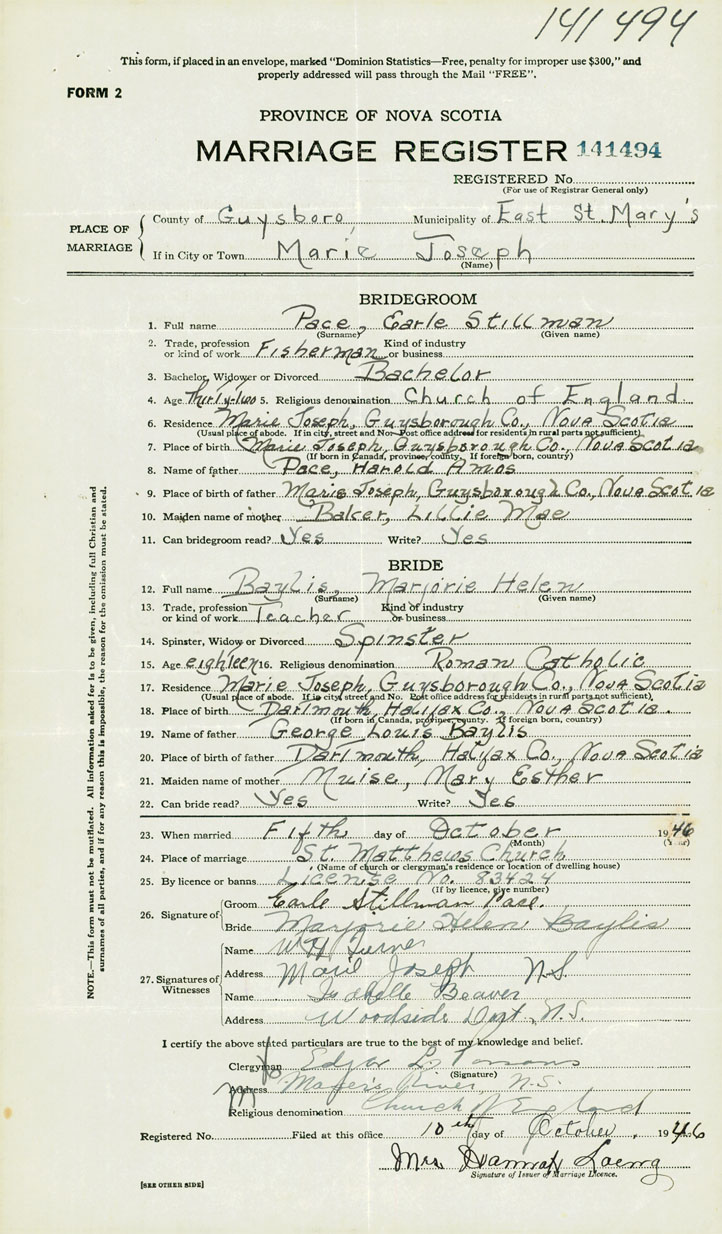 141494
This form, if placed in an envelope, marked "Dominion Statistics—Free, penalty for improper use $300," and
properly addressed will pass through the Mail "FREE".
FORM 2
PROVINCE OF NOVA SCOTIA
MARRIAGE REGISTER 141494
REGISTERED No.
(For use of Registrar General only)
PLACE OF MARRIAGE
County of Guysboro, Municipality of East St. Mary's
If in City or Town Marie Joseph
(Name)
BRIDEGROOM
1. Full name Pace, Earle Stillman
(Surname) (Given name)
2. Trade, profession or kind of work Fisherman Kind of industry or business
3. Bachelor, Widower or Divorced Bachelor
4. Age thirty-two 5. Religious denomination Church of England
6. Residence Marie Joseph, Guysborough Co., Nova Scotia
(Usual place of abode. If in city, street and No. Post office address for residents in rural parts not sufficient)
7. Place of birth Marie Joseph, Guysborough Co., Nova Scotia
(If born in Canada, province, county. If foreign born, country)
8. Name of father Pace, Harold Amos
9. Place of birth of father Marie Joseph, Guysborough Co., Nova Scotia
10. Maiden name of mother Baker, Lillie Mae
11. Can bridegroom read? Yes Write? Yes
BRIDE
12. Full name Baylis, Marjorie Helen
(Surname) (Given name)
13. Trade, profession or kind of work Teacher Kind of industry or business
14. Spinster, Widow or Divorced Spinster
15. Age eighteen 16. Religious denomination Roman Catholic
17. Residence Marie Joseph, Guysborough Co., Nova Scotia
(Usual place of abode. If in city street and No. Post office address for residents in rural parts not sufficient)
18. Place of birth Dartmouth, Halifax Co., Nova Scotia.
(If born in Canada, province, county. If foreign born, country)
19. Name of father George Louis Baylis
20. Place of birth of father Dartmouth, Halifax Co., Nova Scotia
21. Maiden name of mother Muise, Mary Esther
22. Can bride read? Yes Write? Yes
23. When married Fifth day of October 1946
(Month) (Year)
24. Place of marriage St. Matthews Church
(Name of church or clergyman's residence or location of dwelling house)
25. By licence or banns License No. 83424
(If by licence, give number)
26. Signature of
Groom Earle Stillman Pace.
Bride Marjorie Helen Baylis
27. Signatures of Witnesses
Name W H Turner
Address Marie Joseph N.S.
Name Beaver
Address Woodside Dart., N.S.
I certify the above stated particulars are true to the best of my knowledge and belief.
Clergyman Edgar L. Parsons
(Signature)
Address River, N.S.
Religious denomination Church of England
Registered No. Filed at this office 10th day of October, 1946
Mrs Hannah Laing
Signature of Issuer of Marriage Licence.
[SEE OTHER SIDE]
NOTE.—This form must not be mutilated. All information asked for is to be given, including full Christian and
surnames of all parties, and if for any reason this is impossible, the reason for the omission must be stated.